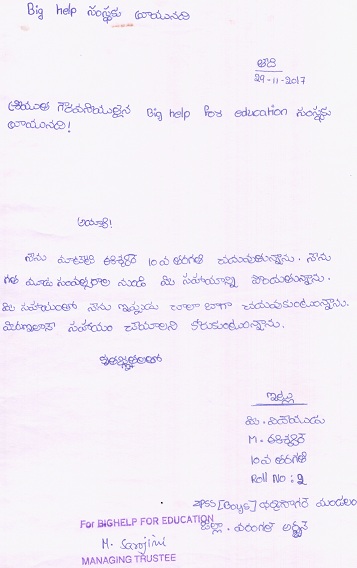 Big help సంస్థకు వ్రాయునది
తేది
29-11-2017
శ్రీయుత గౌరవనీయులైన Big help for education సంస్థకు
వ్రాయునది!
అయ్యా!
నేను 10వ తరగతి చదువుతున్నాను. నేను
గత మూడు సంవత్సరాల నుండి మీ సహాయాన్ని పొందుతున్నాను.
మీ సహాయంతో నేను ఇప్పుడు చాలా బాగా చదువుకుంటున్నాను.
సహాయం చేయాలని కోరుకుంటున్నాను.
కృతజ్ఞతలతో
ఇట్లు
మీ విధేయుడు
M.
10వ తరగతి
Roll No : 2
ZPSS [Boys] మండలం
జిల్లా. వరంగల్ అర్బన్
For BIGHELP FOR EDUCATION
M. Sarojini
MANAGING TRUSTEE